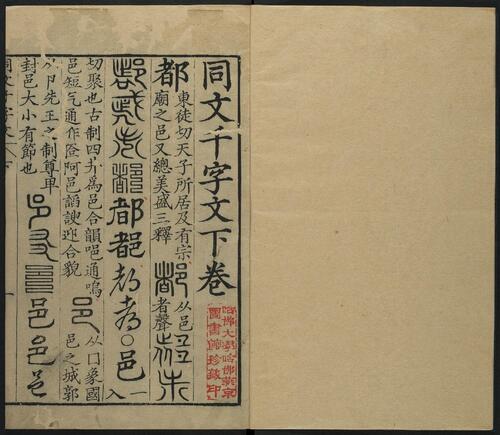 同文千字文下卷
都
東徒切天子所居及有宗
廟之邑又總美盛三釋
都
从邑
者聲
都
都都
○邑
一
入
切聚也古制四井爲邑合韻唈通嗚
邑短气通作
阿邑謟諛迎合貌
邑
从囗象國
邑之城郭
先王之制尊卑
封邑大小有節也
邑邑邑
同文千字文下
一
哈佛大學哈佛燕京
圖書館珍藏印